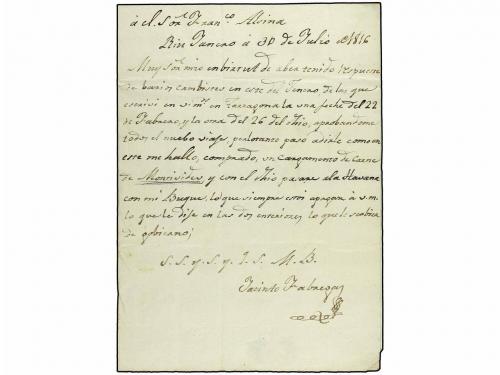 á el Sor. Franco. Alsina
Rio Janero á 30 de Julio de 1816
Muy Sor. mio en birtut de aber tenido respuesta
de barios cambistes en este del Jenero de las que
escrivi en vini en Tarragona la una feche del 22
de Fabrero, y la otra del 26 del dho, aprobandome
todos el nuebo viaje, perlotanto paso adirle como en
este me hallo, comprado, un cargamento de Carne
de Montivideo, y con el dho pasare ala Havana
con mi Buque, lo que siempre estoi apagar á v.m.
lo que le dise en las dos enteriores, lo que le serbira
de gobierno;
S. S. y. S. y. I. S. M. B.
Jacinto Fabregas